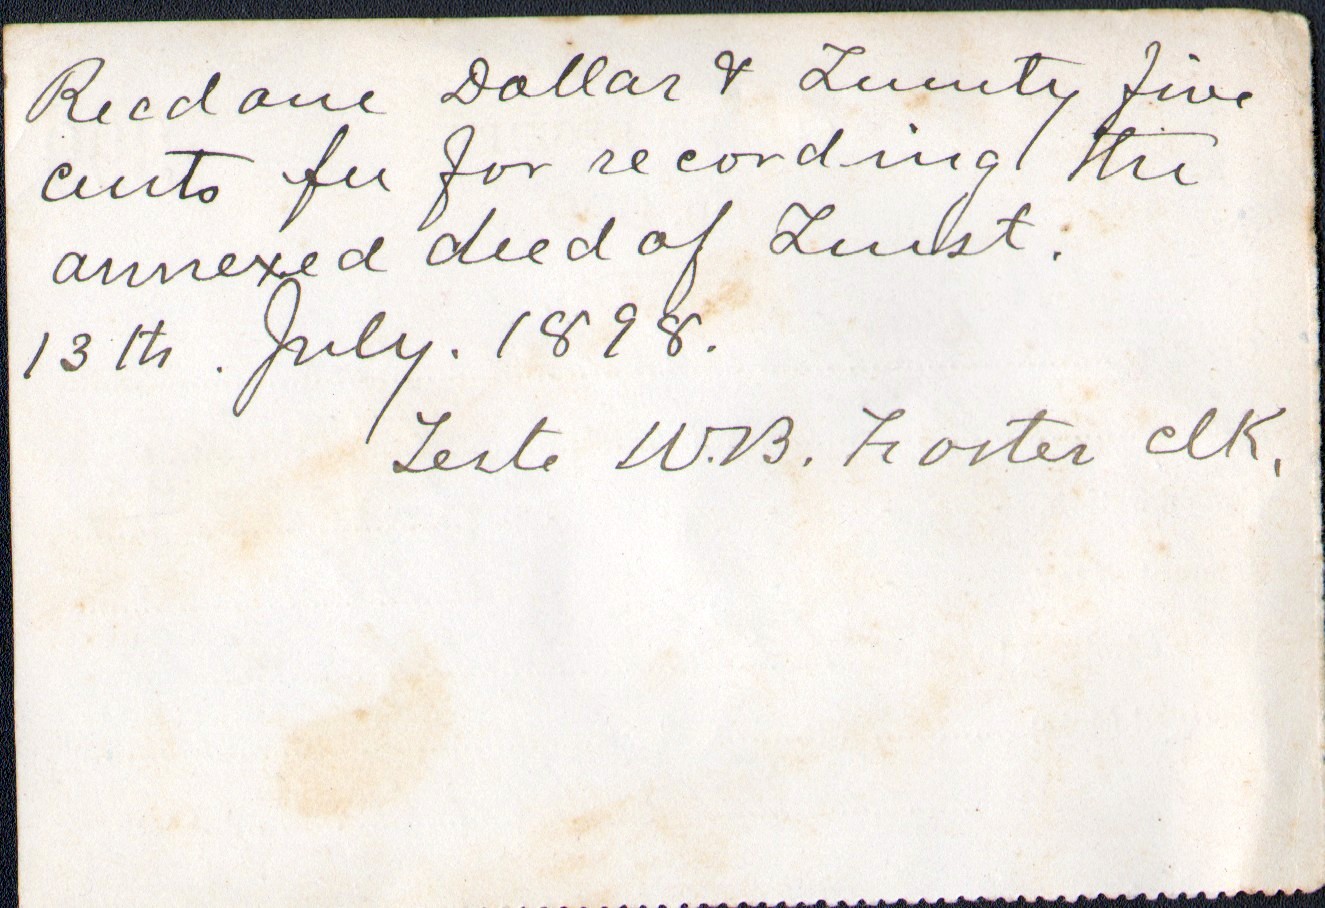 Recd one Dollar & Twenty five
cents fee for recording the
annexed deed of Trust.
13th. July. 1898.
Teste W.B. Foster clk.